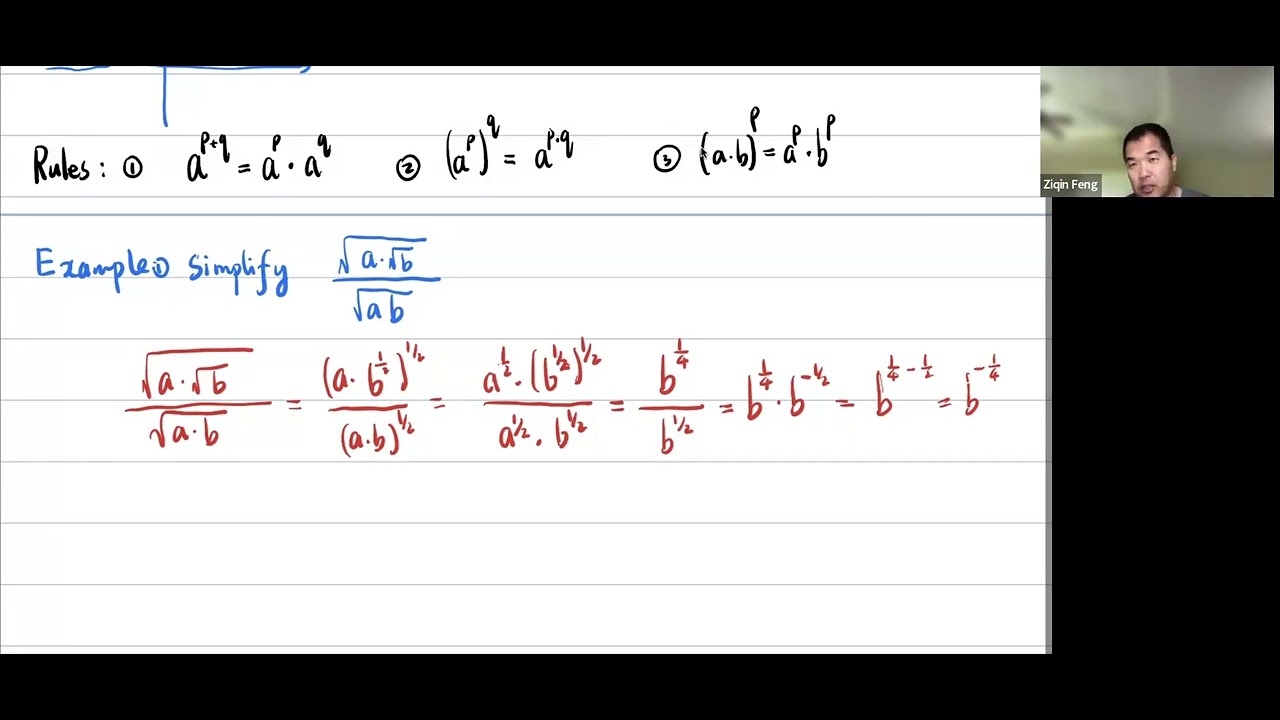 Rules: ① a^{p+q} = a^p · a^q ② (a^p)^q = a^{p·q} ③ (a·b)^p = a^p · b^p
Ziqin Feng
Example① Simplify \frac{\sqrt{a·\sqrt{b}}}{\sqrt{ab}}
\frac{\sqrt{a·\sqrt{b}}}{\sqrt{a·b}} = \frac{(a·b^{\frac{1}{2}})^{1/2}}{(a·b)^{1/2}} = \frac{a^{\frac{1}{2}}·(b^{1/2})^{1/2}}{a^{1/2}·b^{1/2}} = \frac{b^{\frac{1}{4}}}{b^{1/2}} = b^{\frac{1}{4}}·b^{-1/2} = b^{\frac{1}{4}-\frac{1}{2}} = b^{-\frac{1}{4}}